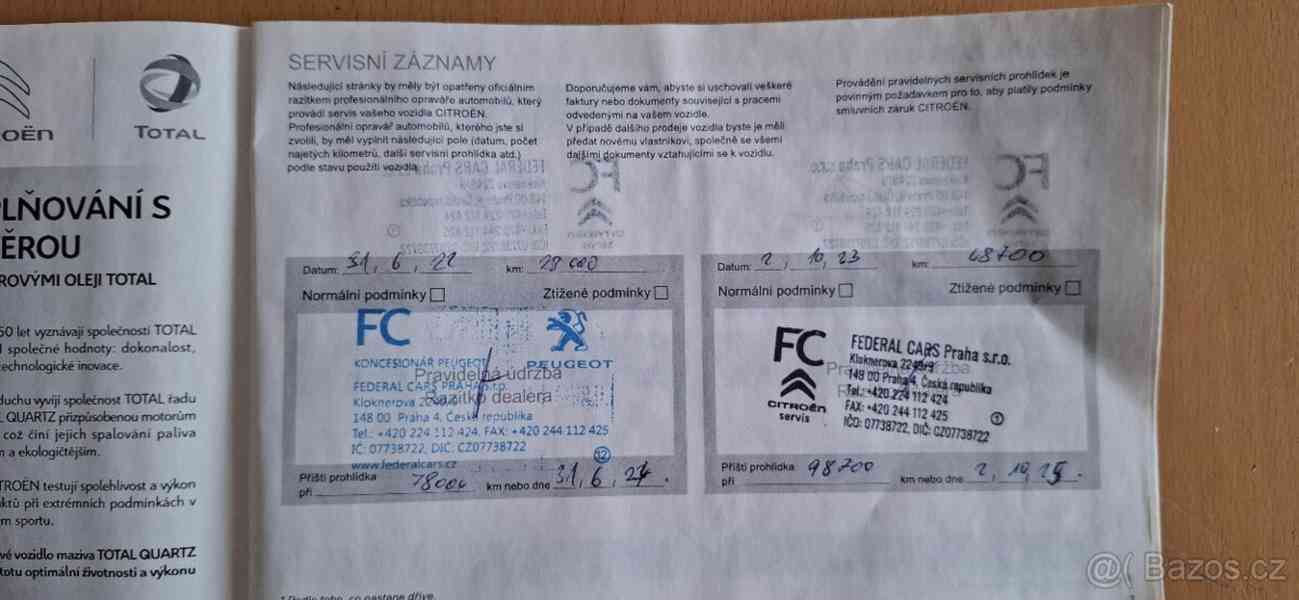 ROËN
TOTAL
PLŇOVÁNÍ S
ĚROU
ROVÝMI OLEJI TOTAL
50 let vyznávají společností TOTAL
společné hodnoty: dokonalost,
echnologické inovace.
duchu vyvíjí společnost TOTAL řadu
QUARTZ přizpůsobenou motorům
což činí jejich spalování paliva
m a ekologičtějším.
TROËN testují spolehlivost a výkon
ktů při extrémních podmínkách v
m sportu.
vé vozidlo maziva TOTAL QUARTZ
totu optimální životnosti a výkonu
SERVISNÍ ZÁZNAMY
Následující stránky by měly být opatřeny oficiálním
razítkem profesionálního opraváře automobilů, který
provádí servis vašeho vozidla CITROËN.
Profesionální opravář automobilů, kterého jste si
zvolili, by měl vyplnit následující pole (datum, počet
najetých kilometrů, další servisní prohlídka atd.)
podle stavu použití vozidla.
Doporučujeme vám, abyste si uschovali veškeré
faktury nebo dokumenty související s pracemi
odvedenými na vašem vozidle.
V případě dalšího prodeje vozidla byste je měli
předat novému vlastníkovi, společně se všemi
dalšími dokumenty vztahujícími se k vozidlu.
Provádění pravidelných servisních prohlídek je
povinným požadavkem pro to, aby platily podmínky
smluvních záruk CITROËN.
Datum: 31, 6, 22 km: 28 000
Normální podmínky Ztížené podmínky
FC
KONCESIONÁŘ PEUGEOT PEUGEOT
Pravidelná údržba
FEDERAL CARS PRAHA s.r.o.
Razítko dealera
Kloknerova
148 00 Praha 4, Česká republika
Tel.: +420 224 112 424, FAX: +420 244 112 425
IČ: 07738722, DIČ: CZ07738722
www.federalcars.cz
12
Příští prohlídka
při 78000 km nebo dne 31, 6, 24.
Datum: 2, 10, 23 km: 68700
Normální podmínky Ztížené podmínky
FC
CITROËN
servis
FEDERAL CARS Praha s.r.o.
Kloknerova 2249/9
148 00 Praha 4, Česká republika
Tel.: +420 224 112 424
FAX: +420 244 112 425
IČO: 07738722, DIČ: CZ07738722
1
Příští prohlídka 98700
při km nebo dne 2, 10, 25.
* Podle toho, co nastane dříve.
@( Bazos.cz